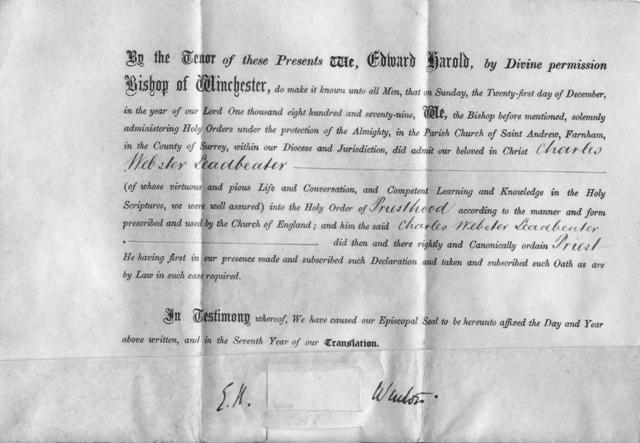 By the Tenor of these Presents We, Edward Harold, by Divine permission
Bishop of Winchester, do make it known unto all Men, that on Sunday, the Twenty-first day of December,
in the year of our Lord One thousand eight hundred and seventy-nine, We, the Bishop before mentioned, solemnly
administering Holy Orders under the protection of the Almighty, in the Parish Church of Saint Andrew, Farnham,
in the County of Surrey, within our Diocese and Jurisdiction, did admit our beloved in Christ Charles
Webster Leadbeater
(of whose virtuous and pious Life and Conversation, and Competent Learning and Knowledge in the Holy
Scriptures, we were well assured) into the Holy Order of Priesthood according to the manner and form
prescribed and used by the Church of England; and him the said Charles Webster Leadbeater
did then and there rightly and Canonically ordain Priest
He having first in our presence made and subscribed such Declaration and taken and subscribed such Oath as are
by Law in such case required.
In Testimony whereof, We have caused our Episcopal Seal to be hereunto affixed the Day and Year
above written, and in the Seventh Year of our Translation.
E. H. Winton.